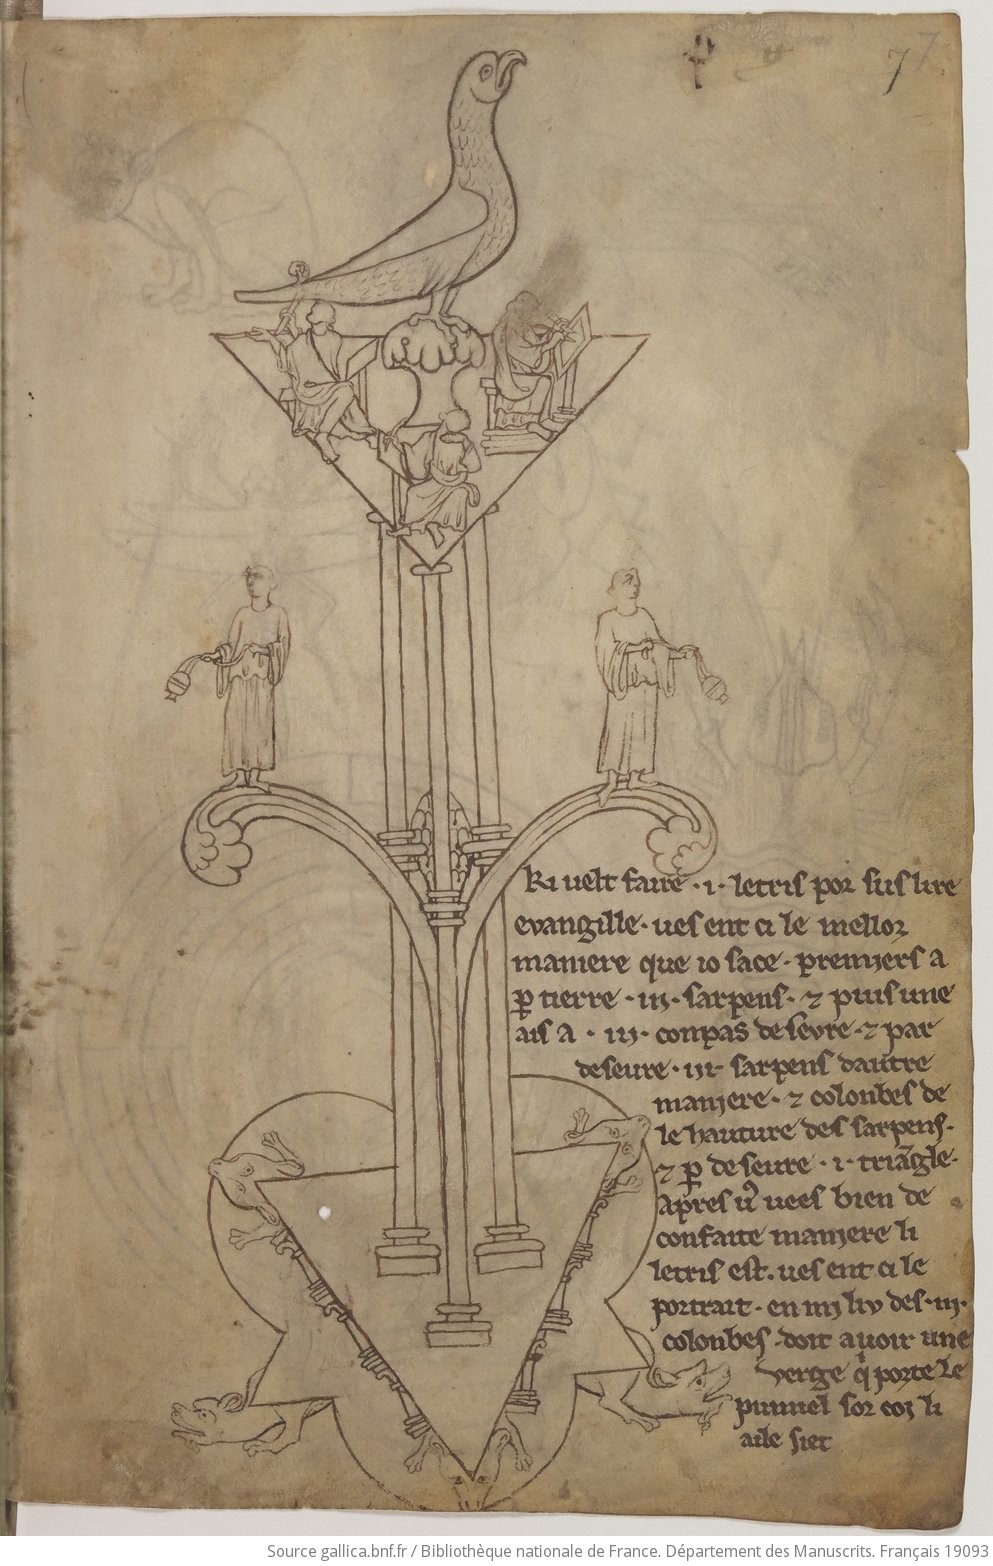 7 7
Ki velt faire · i · letris por sus lire
evangille · ves ent ci le mellor
maniere que io sace · premiers a
p̱ tierre · iij · sarpens · ⁊ puis une
ais a · iij · conpas desevre · ⁊ par
deseure · iij · sarpens dautre
maniere · ⁊ colonbes de
le hauture des sarpens ·
⁊ p̱ deseure · i · triãgle ·
Apres v⁹ vees bien de
confaite maniere li
letris est · ves ent ci le
portrait · en mi liv des · iij ·
colonbes · doit avoir une
verge q̍ porte le
pumiel sor coi li
aile siet
Source gallica.bnf.fr / Bibliothèque nationale de France. Département des Manuscrits. Français 19093